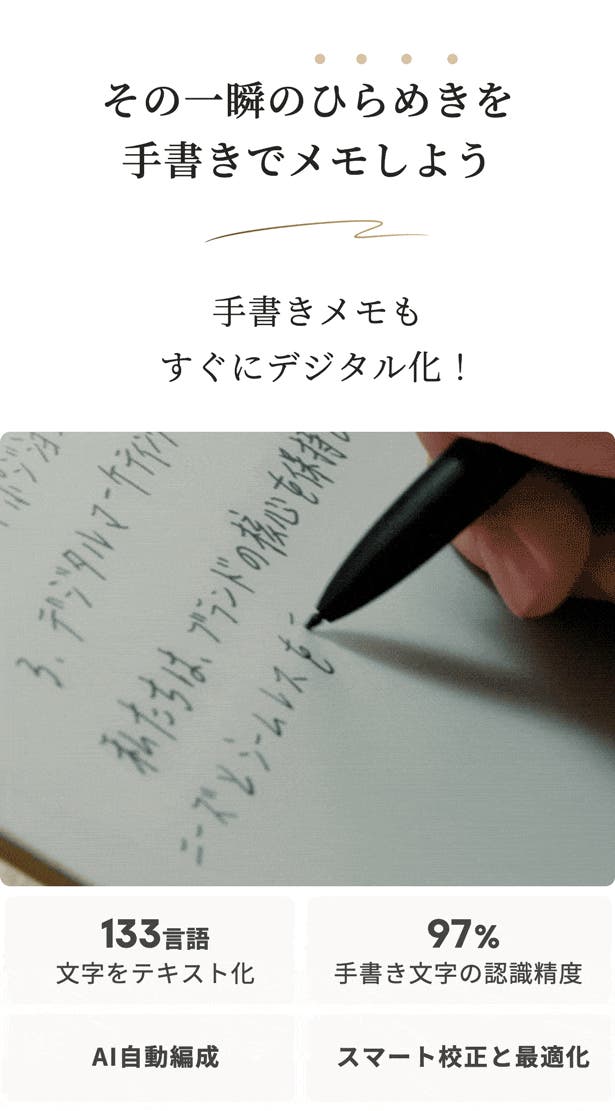 その一瞬のひらめきを
手書きでメモしよう
手書きメモも
すぐにデジタル化！
3. デジタルマーケティング
私たちは、ブランドの核心を保持し
ニーズとシームレスを
133言語
文字をテキスト化
97%
手書き文字の認識精度
AI自動編成
スマート校正と最適化